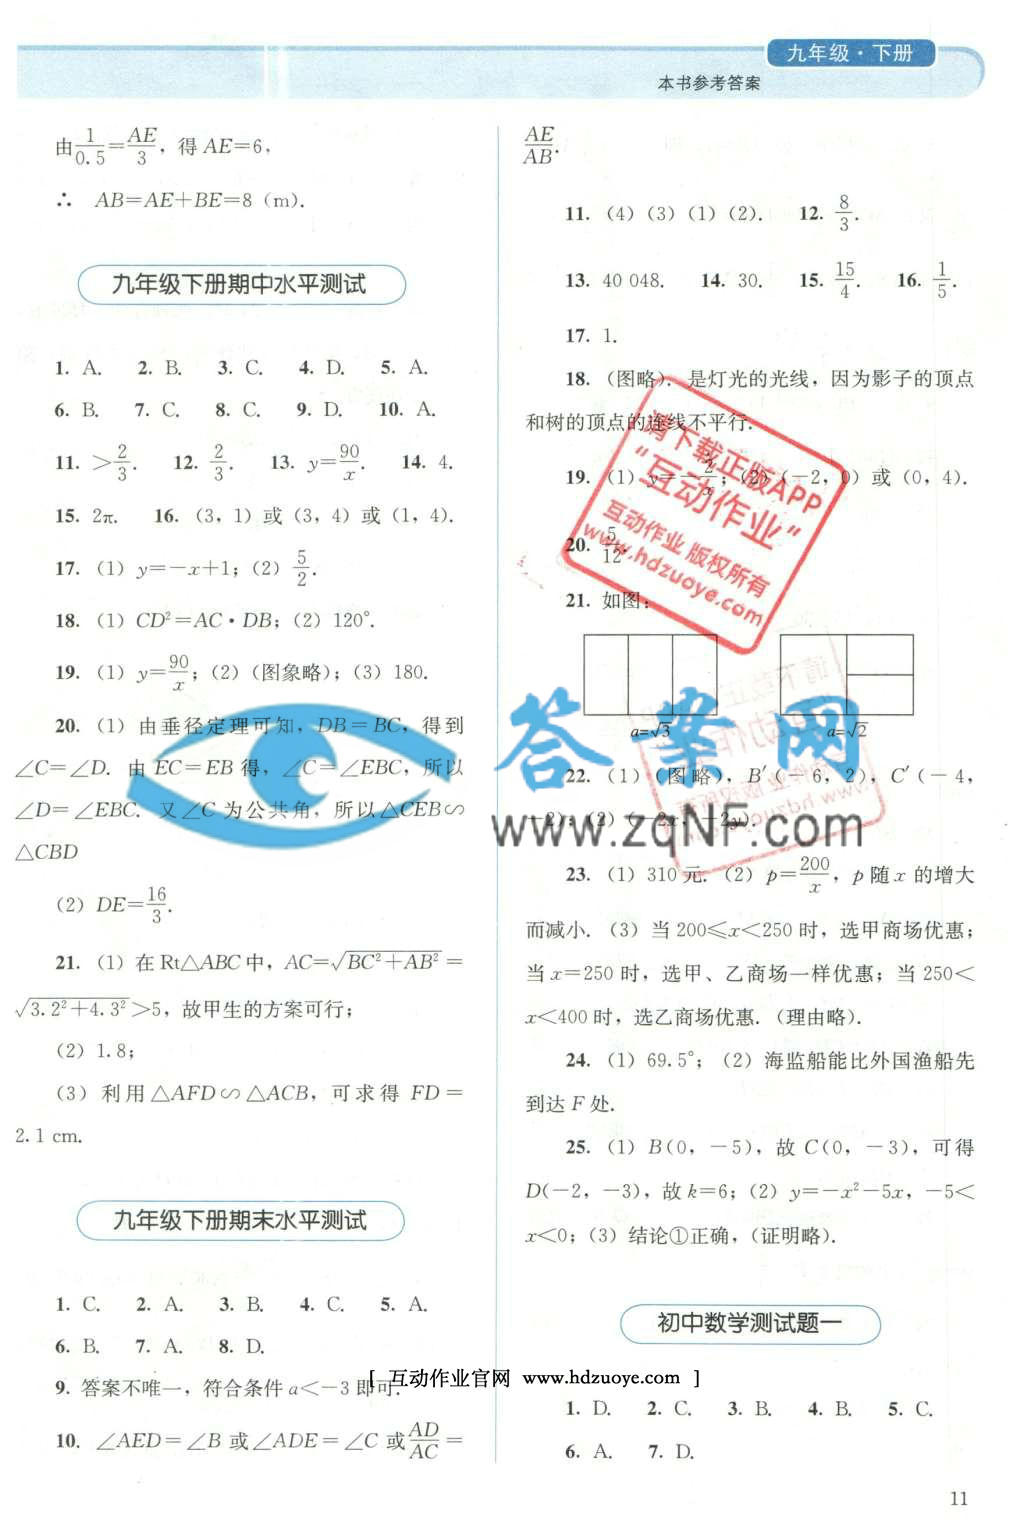 九年级·下册
本书参考答案
由1/0.5=AE/3，得 AE=6，
∴ AB=AE+BE=8 (m).
九年级下册期中水平测试
1. A. 2. B. 3. C. 4. D. 5. A.
6. B. 7. C. 8. C. 9. D. 10. A.
11. >2/3. 12. 2/3. 13. y=90/x. 14. 4.
15. 2π. 16. (3, 1) 或 (3, 4) 或 (1, 4).
17. (1) y=-x+1；(2) 5/2.
18. (1) CD²=AC·DB；(2) 120°.
19. (1) y=90/x；(2)(图象略)；(3) 180.
20. (1) 由垂径定理可知，DB=BC，得到
∠C=∠D. 由 EC=EB 得，∠C=∠EBC，所以
∠D=∠EBC. 又∠C 为公共角，所以△CEB∽
△CBD
(2) DE=16/3.
21. (1) 在 Rt△ABC 中，AC=√(BC²+AB²)=
√(3.2²+4.3²)>5，故甲生的方案可行；
(2) 1.8；
(3) 利用△AFD∽△ACB，可求得 FD=
2.1 cm.
九年级下册期末水平测试
1. C. 2. A. 3. B. 4. C. 5. A.
6. B. 7. A. 8. D.
9. 答案不唯一，符合条件 a<-3 即可.
10. ∠AED=∠B 或∠ADE=∠C 或AD/AC=
AE/AB.
11. (4) (3) (1) (2). 12. 8/3.
13. 40 048. 14. 30. 15. 15/4. 16. 1/5.
17. 1.
18. (图略). 是灯光的光线，因为影子的顶点
和树的顶点的连线不平行.
19. (1) y=-2/x；(2) (-2, 0) 或 (0, 4).
20. 5/12.
21. 如图：
a=√3 a=√2
22. (1) (图略)，B′(-6, 2)，C′(-4,
-2)；(2) (-2x, -2y).
23. (1) 310 元. (2) p=200/x，p 随 x 的增大
而减小. (3) 当 200≤x<250 时，选甲商场优惠；
当 x=250 时，选甲、乙商场一样优惠；当 250<
x<400 时，选乙商场优惠. (理由略).
24. (1) 69.5°；(2) 海监船能比外国渔船先
到达 F 处.
25. (1) B(0, -5)，故 C(0, -3)，可得
D(-2, -3)，故 k=6；(2) y=-x²-5x，-5<
x<0；(3) 结论①正确，(证明略).
初中数学测试题一
1. D. 2. C. 3. B. 4. B. 5. C.
6. A. 7. D.
11
请下载正版APP
“互动作业”
互动作业 版权所有
www.hdzuoye.com
答案网
www.zqNF.com
[ 互动作业官网 www.hdzuoye.com ]